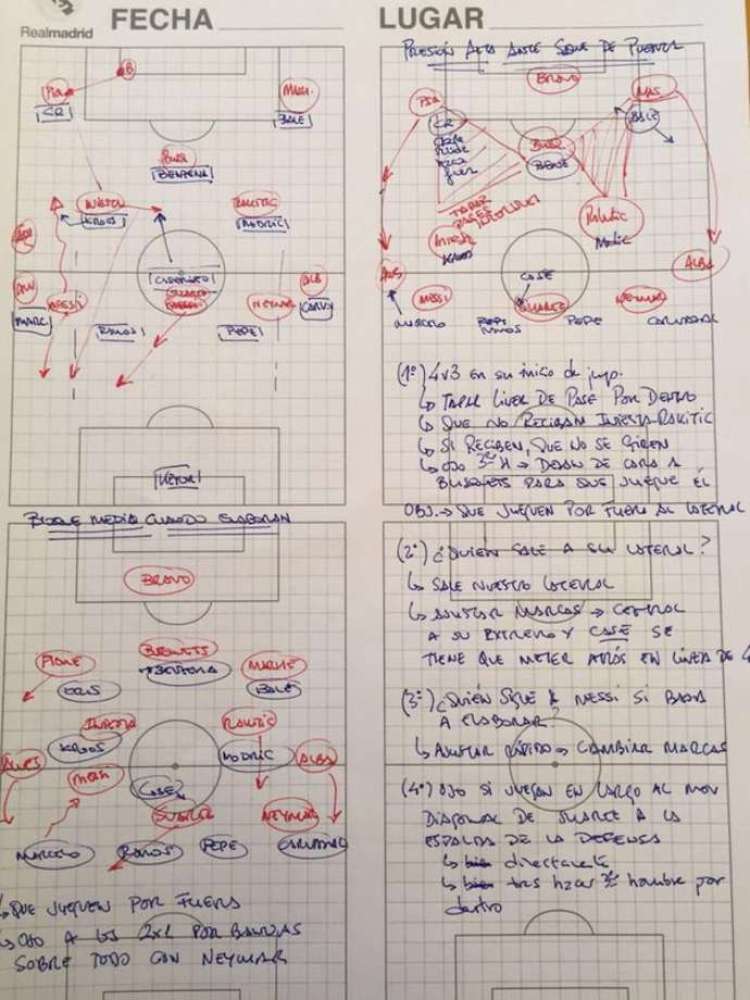 Realmadrid
FECHA
LUGAR
B
CR
BALE
BUSI
BENZEMA
KROOS
RAKITIC
MODRIC
CASEMIRO
MESSI
NEYMAR
ALB
MARC
RAMOS
PEPE
CARVJ
KEYLOR
PRESIÓN ALTA ANTE SAQUE DE PUERTA
BRAVO
MAS
CR
BALE
BUSI
BENZE
TAPAR
PASES
INTERIORES
INIESTA
KROOS
Rakitic
Modric
ALVES
ALBA
MESSI
CASE
SUAREZ
NEYMAR
MARCELO
RAMOS
PEPE
CARVAJAL
(1º) 4v3 en su inicio de juego.
↳ TAPAR LÍNEA DE PASE POR DENTRO
↳ QUE NO RECIBAN INIESTA-RAKITIC
↳ SI RECIBEN, QUE NO SE GIREN
↳ OJO 3er H → DEJAN DE CARA A
BUSQUETS PARA QUE JUEGUE ÉL
OBJ. → QUE JUEGUEN POR FUERA AL LATERAL
(2º) ¿QUIÉN SALE A SU LATERAL?
↳ SALE NUESTRO LATERAL
↳ AJUSTAR MARCAS → CENTRAL
A SU EXTREMO Y CASE SE
TIENE QUE METER ATRÁS EN LÍNEA DE 4
(3º) ¿QUIÉN SIGUE A MESSI SI BAJA
A ELABORAR?
↳ AJUSTAR RÁPIDO → CAMBIAR MARCAS
(4º) OJO SI JUEGAN EN LARGO AL MOV
DIAGONAL DE SUAREZ A LA
ESPALDA DE LA DEFENSA
↳ bien directamente
↳ bien tras hacer 3er hombre por
dentro
BLOQUE MEDIO CUANDO ELABORAN
BRAVO
PIQUE
BUSQUETS
BENZEMA
CRIS
BALE
INIESTA
KROOS
RAKITIC
MODRIC
ALVES
ALBA
MESSI
CASE
SUAREZ
NEYMAR
MARCELO
RAMOS
PEPE
CARVAJAL
↳ QUE JUEGUEN POR FUERA
↳ OJO A LOS 2x1 POR BANDAS
SOBRE TODO CON NEYMAR